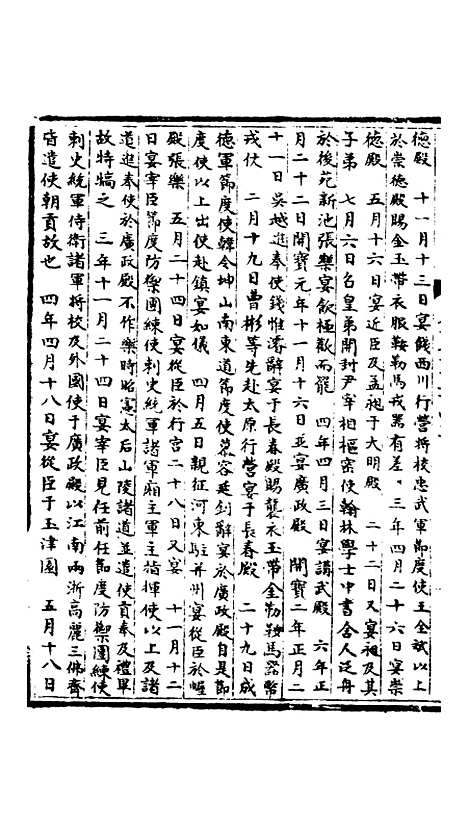 德殿　十一月十三日宴餞西川行營將校忠武軍節度使王全斌以上
於崇德殿賜金玉帶衣服鞍勒馬戎器有差　三年四月二十六日宴崇
德殿　五月十六日宴近臣及孟昶于大明殿　二十二日又宴昶及其
子弟　七月六日召皇弟開封尹宰相樞密使翰林學士中書舍人泛舟
於後苑新池張樂宴飲極歡而罷　四年四月三日宴講武殿　六年正
月二十二日開寶元年十一月十六日並宴廣政殿　開寶二年正月二
十一日吳越進奉使錢惟濬辭宴于長春殿賜襲衣玉帶金勒鞍馬器幣
戎仗　二月十九日曹彬等先赴太原行營宴于長春殿　二十九日成
德軍節度使韓令坤山南東道節度使慕容延釗辭宴於廣政殿自是節
度使以上出使赴鎮宴如儀　四月五日親征河東駐并州宴從臣於幄
殿張樂　五月二十四日宴從臣於行宮二十八日又宴　十一月十二
日宴宰臣節度防禦團練使刺史統軍諸軍廂主軍主指揮使以上及諸
道進奉使於廣政殿不作樂時昭憲太后山陵諸道並遣使貢奉及禮畢
故特犒之　三年十一月二十四日宴宰臣見任前任節度防禦團練使
刺史統軍侍衛諸軍將校及外國使于廣政殿以江南兩浙高麗三佛齊
皆遣使朝貢故也　四年四月十八日宴從臣于玉津園　五月十八日